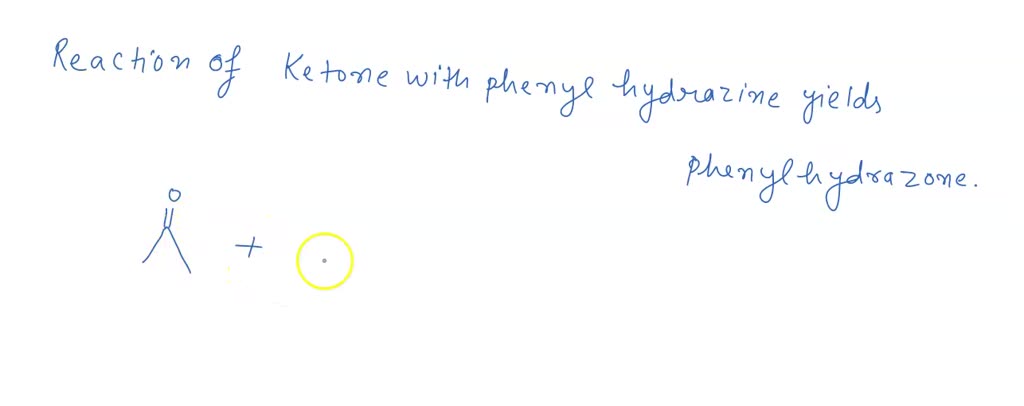 Reaction of Ketone with phenyl hydrazine yields
phenylhydrazone.
O
+